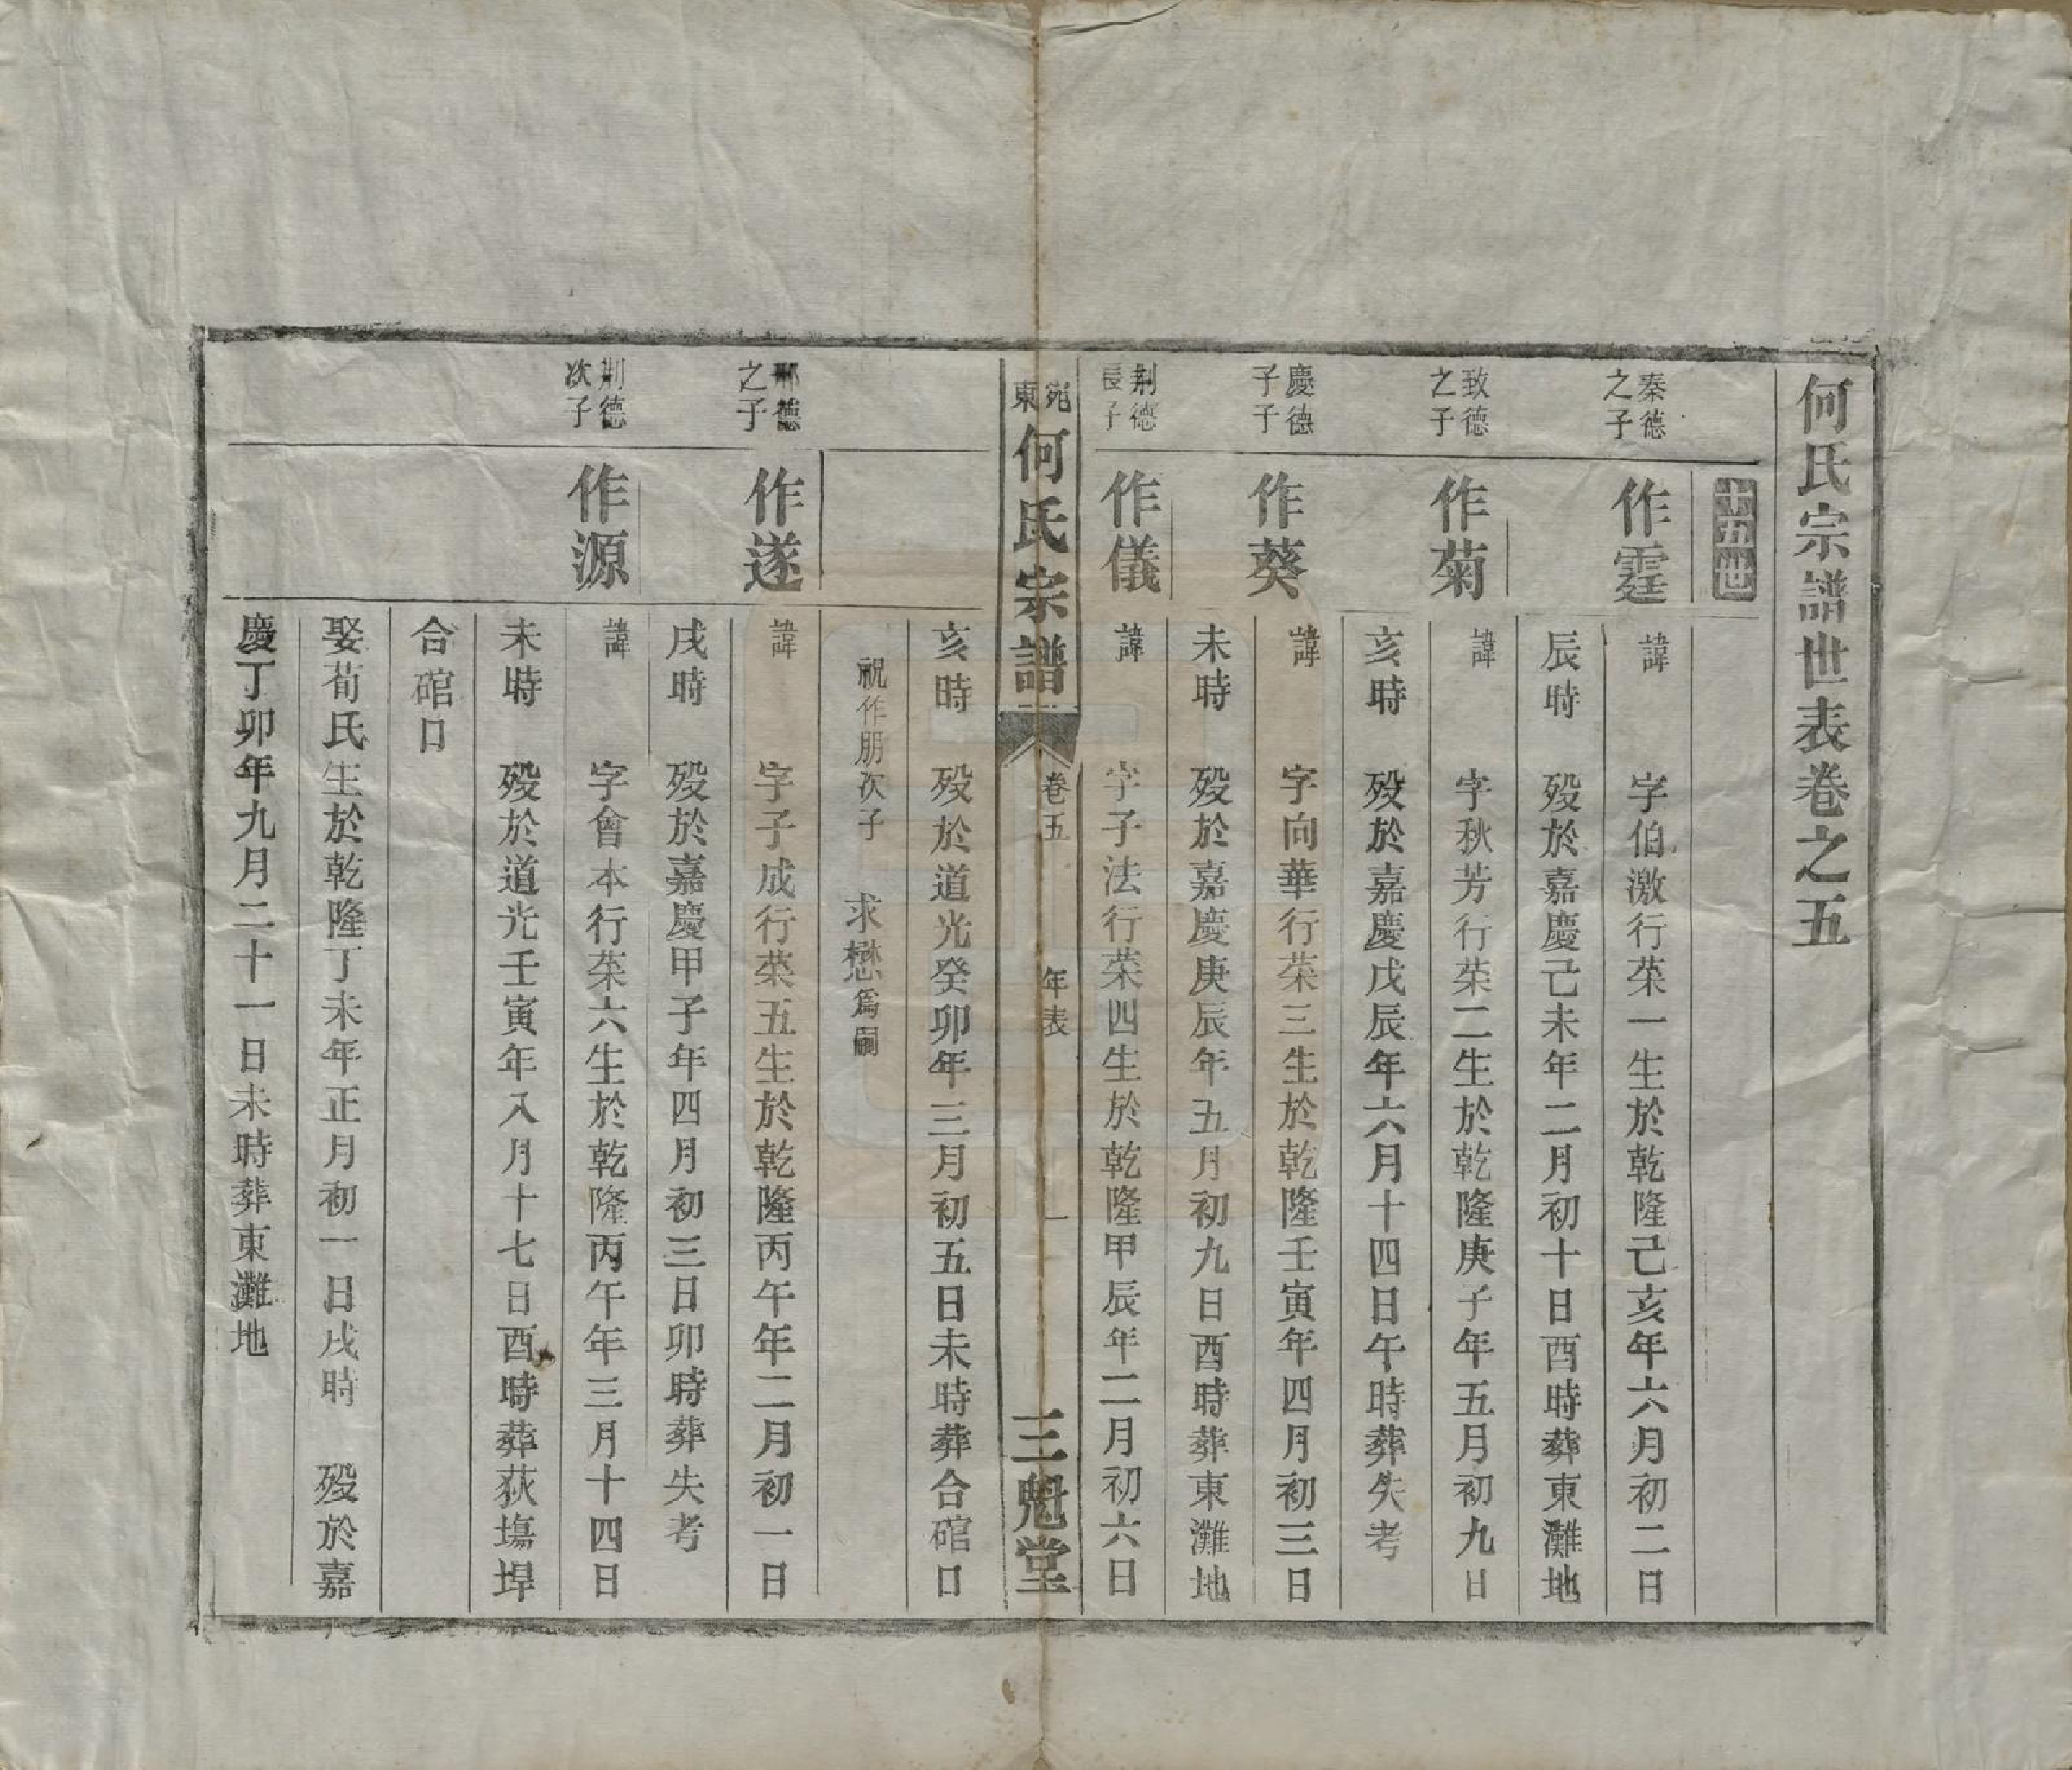 何氏宗譜世表卷之五
十五世
秦德
之子
作霆
諱　字伯激行荣一生於乾隆己亥年六月初二日
辰時　殁於嘉慶己未年二月初十日酉時葬東灘地
致德
之子
作菊
諱　字秋芳行荣二生於乾隆庚子年五月初九日
亥時　殁於嘉慶戊辰年六月十四日午時葬失考
慶德
子子
作葵
諱　字向華行荣三生於乾隆壬寅年四月初三日
未時　殁於嘉慶庚辰年五月初九日酉時葬東灘地
荆德
長子
作儀
諱　字子法行荣四生於乾隆甲辰年二月初六日
宛東
何氏宗譜
卷五
年表
一
三魁堂
亥時　殁於道光癸卯年三月初五日未時葬合碏口
祝作朋次子　求懋為嗣
邢德
之子
作遂
諱　字子成行荣五生於乾隆丙午年二月初一日
戌時　殁於嘉慶甲子年四月初三日卯時葬失考
荆德
次子
作源
諱　字會本行荣六生於乾隆丙午年三月十四日
未時　殁於道光壬寅年八月十七日酉時葬荻塲埠
合碏口
娶荀氏生於乾隆丁未年正月初一日戌時　殁於嘉
慶丁卯年九月二十一日未時葬東灘地